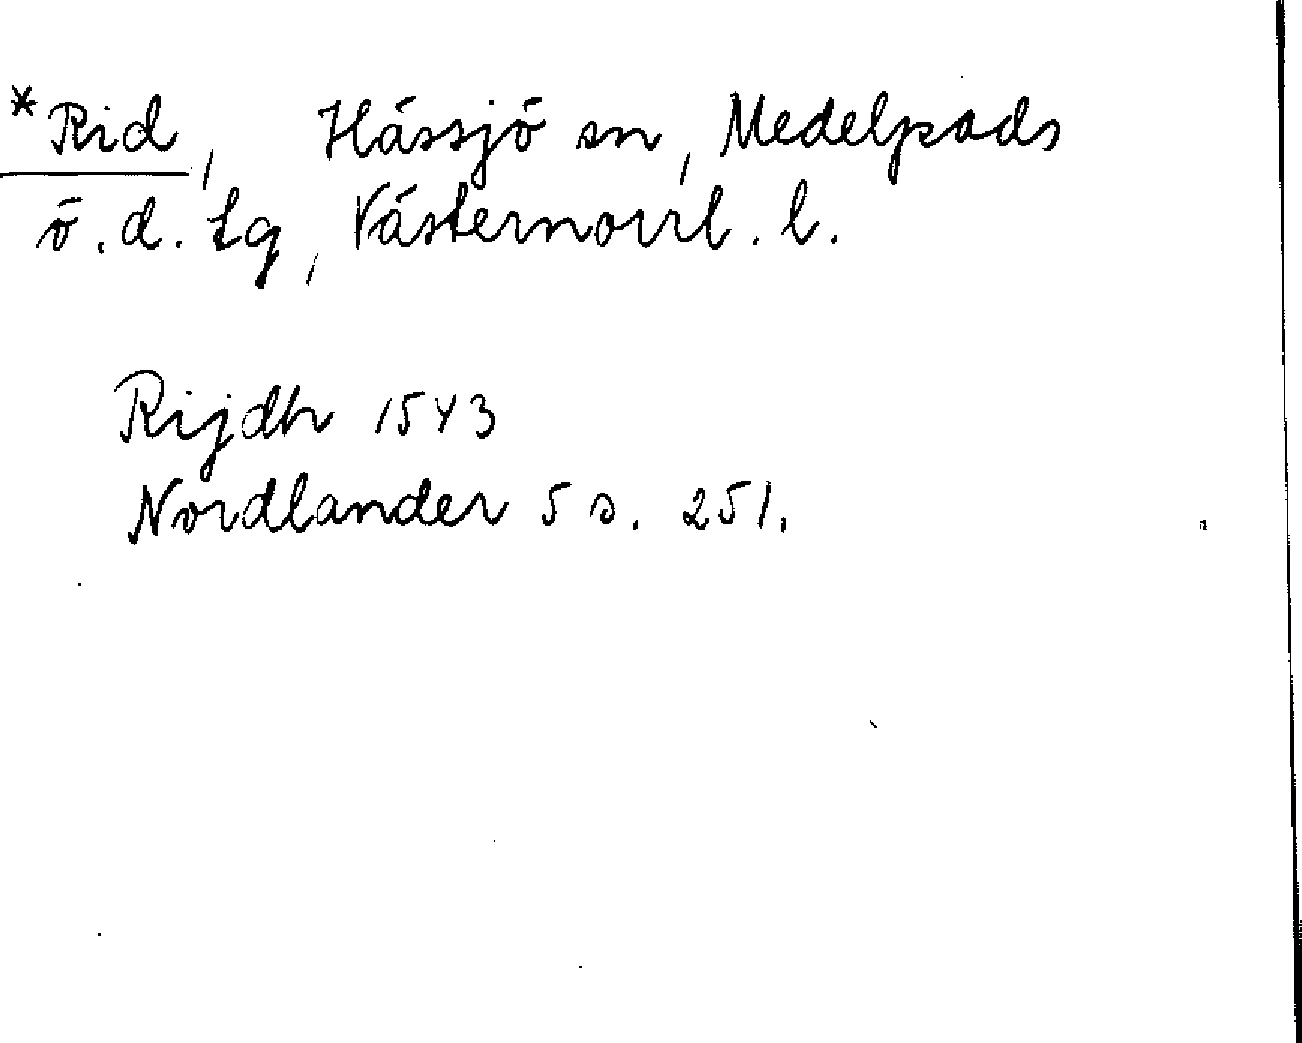 *Rid, Hässjö sn, Medelpads
ö. d. tg, Västernorrl. l.
Rijdh 1543
Nordlander 5 s. 251.